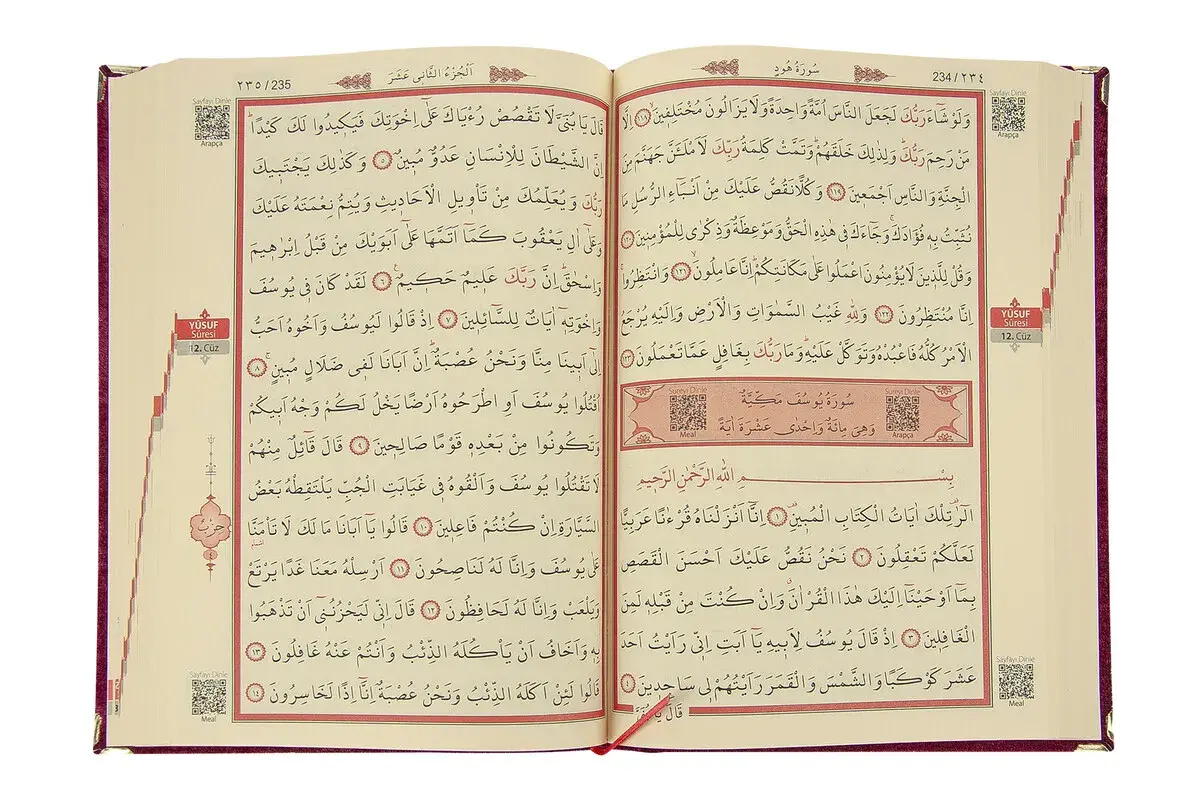 234/٢٣٤
سُورَةُ هُودٍ
Sayfayı Dinle
Arapça
وَلَوْ شَٓاءَ رَبُّكَ لَجَعَلَ النَّاسَ اُمَّةً وَاحِدَةً وَلَا يَزَالُونَ مُخْتَلِفٖينَۙ ﴿١١٨﴾ اِلَّا
مَنْ رَحِمَ رَبُّكَؕ وَلِذٰلِكَ خَلَقَهُمْؕ وَتَمَّتْ كَلِمَةُ رَبِّكَ لَاَمْلَـَٔنَّ جَهَنَّمَ مِنَ
الْجِنَّةِ وَالنَّاسِ اَجْمَعٖينَ ﴿١١٩﴾ وَكُلًّا نَقُصُّ عَلَيْكَ مِنْ اَنْبَٓاءِ الرُّسُلِ مَا
نُثَبِّتُ بِهٖ فُؤٰادَكَۚ وَجَٓاءَكَ فٖي هٰذِهِ الْحَقُّ وَمَوْعِظَةٌ وَذِكْرٰى لِلْمُؤْمِنٖينَ ﴿١٢٠﴾
وَقُلْ لِلَّذٖينَ لَا يُؤْمِنُونَ اعْمَلُوا عَلٰى مَكَانَتِكُمْؕ اِنَّا عَامِلُونَۙ ﴿١٢١﴾ وَانْتَظِرُواۚ
اِنَّا مُنْتَظِرُونَ ﴿١٢٢﴾ وَلِلّٰهِ غَيْبُ السَّمٰوَاتِ وَالْاَرْضِ وَاِلَيْهِ يُرْجَعُ
الْاَمْرُ كُلُّهُ فَاعْبُدْهُ وَتَوَكَّلْ عَلَيْهِؕ وَمَا رَبُّكَ بِغَافِلٍ عَمَّا تَعْمَلُونَ ﴿١٢٣﴾
Sureyi Dinle
Meal
سُورَةُ يُوسُفَ مَكِّيَّةٌ
وَهِيَ مِائَةٌ وَاِحْدٰى عَشْرَةَ اٰيَةً
Sureyi Dinle
Arapça
بِسْمِ اللّٰهِ الرَّحْمٰنِ الرَّحٖيمِ
الٓرٰ۠ تِلْكَ اٰيَاتُ الْكِتَابِ الْمُبٖينِ۠ ﴿١﴾ اِنَّٓا اَنْزَلْنَاهُ قُرْءٰنًا عَرَبِيًّا
لَعَلَّكُمْ تَعْقِلُونَ ﴿٢﴾ نَحْنُ نَقُصُّ عَلَيْكَ اَحْسَنَ الْقَصَصِ
بِمَٓا اَوْحَيْنَٓا اِلَيْكَ هٰذَا الْقُرْاٰنَۗ وَاِنْ كُنْتَ مِنْ قَبْلِهٖ لَمِنَ
الْغَافِلٖينَ ﴿٣﴾ اِذْ قَالَ يُوسُفُ لِاَبٖيهِ يَٓا اَبَتِ اِنّٖي رَاَيْتُ اَحَدَ
عَشَرَ كَوْكَبًا وَالشَّمْسَ وَالْقَمَرَ رَاَيْتُهُمْ لٖي سَاجِدٖينَ ﴿٤﴾
قَالَ يَا بُنَيَّ
YÛSUF
Sûresi
12. Cüz
Sayfayı Dinle
Meal
٢٣٥/235
اَلْجُزْءُ الثَّانٖي عَشَرَ
Sayfayı Dinle
Arapça
قَالَ يَا بُنَيَّ لَا تَقْصُصْ رُءْيَاكَ عَلٰٓى اِخْوَتِكَ فَيَكٖيدُوا لَكَ كَيْدًاؕ
اِنَّ الشَّيْطَانَ لِلْاِنْسَانِ عَدُوٌّ مُبٖينٌ ﴿٥﴾ وَكَذٰلِكَ يَجْتَبٖيكَ
رَبُّكَ وَيُعَلِّمُكَ مِنْ تَأْوٖيلِ الْاَحَادٖيثِ وَيُتِمُّ نِعْمَتَهُ عَلَيْكَ
وَعَلٰٓى اٰلِ يَعْقُوبَ كَمَٓا اَتَمَّهَا عَلٰٓى اَبَوَيْكَ مِنْ قَبْلُ اِبْرٰهٖيمَ
وَاِسْحٰقَؕ اِنَّ رَبَّكَ عَلٖيمٌ حَكٖيمٌ۟ ﴿٦﴾ لَقَدْ كَانَ فٖي يُوسُفَ
وَاِخْوَتِهٖٓ اٰيَاتٌ لِلسَّٓائِلٖينَ ﴿٧﴾ اِذْ قَالُوا لَيُوسُفُ وَاَخُوهُ اَحَبُّ
اِلٰٓى اَبٖينَا مِنَّا وَنَحْنُ عُصْبَةٌؕ اِنَّ اَبَانَا لَفٖي ضَلَالٍ مُبٖينٍۚ ﴿٨﴾
اُقْتُلُوا يُوسُفَ اَوِ اطْرَحُوهُ اَرْضًا يَخْلُ لَكُمْ وَجْهُ اَبٖيكُمْ
وَتَكُونُوا مِنْ بَعْدِهٖ قَوْمًا صَالِحٖينَ ﴿٩﴾ قَالَ قَٓائِلٌ مِنْهُمْ
لَا تَقْتُلُوا يُوسُفَ وَاَلْقُوهُ فٖي غَيَابَتِ الْجُبِّ يَلْتَقِطْهُ بَعْضُ
السَّيَّارَةِ اِنْ كُنْتُمْ فَاعِلٖينَ ﴿١٠﴾ قَالُوا يَٓا اَبَانَا مَا لَكَ لَا تَأْمَنَّا
عَلٰى يُوسُفَ وَاِنَّا لَهُ لَنَاصِحُونَ ﴿١١﴾ اَرْسِلْهُ مَعَنَا غَدًا يَرْتَعْ
وَيَلْعَبْ وَاِنَّا لَهُ لَحَافِظُونَ ﴿١٢﴾ قَالَ اِنّٖي لَيَحْزُنُنٖٓي اَنْ تَذْهَبُوا
بِهٖ وَاَخَافُ اَنْ يَأْكُلَهُ الذِّئْبُ وَاَنْتُمْ عَنْهُ غَافِلُونَ ﴿١٣﴾
قَالُوا لَئِنْ اَكَلَهُ الذِّئْبُ وَنَحْنُ عُصْبَةٌ اِنَّٓا اِذًا لَخَاسِرُونَ ﴿١٤﴾
YÛSUF
Sûresi
12. Cüz
حِزْبٌ
٤
Sayfayı Dinle
Meal